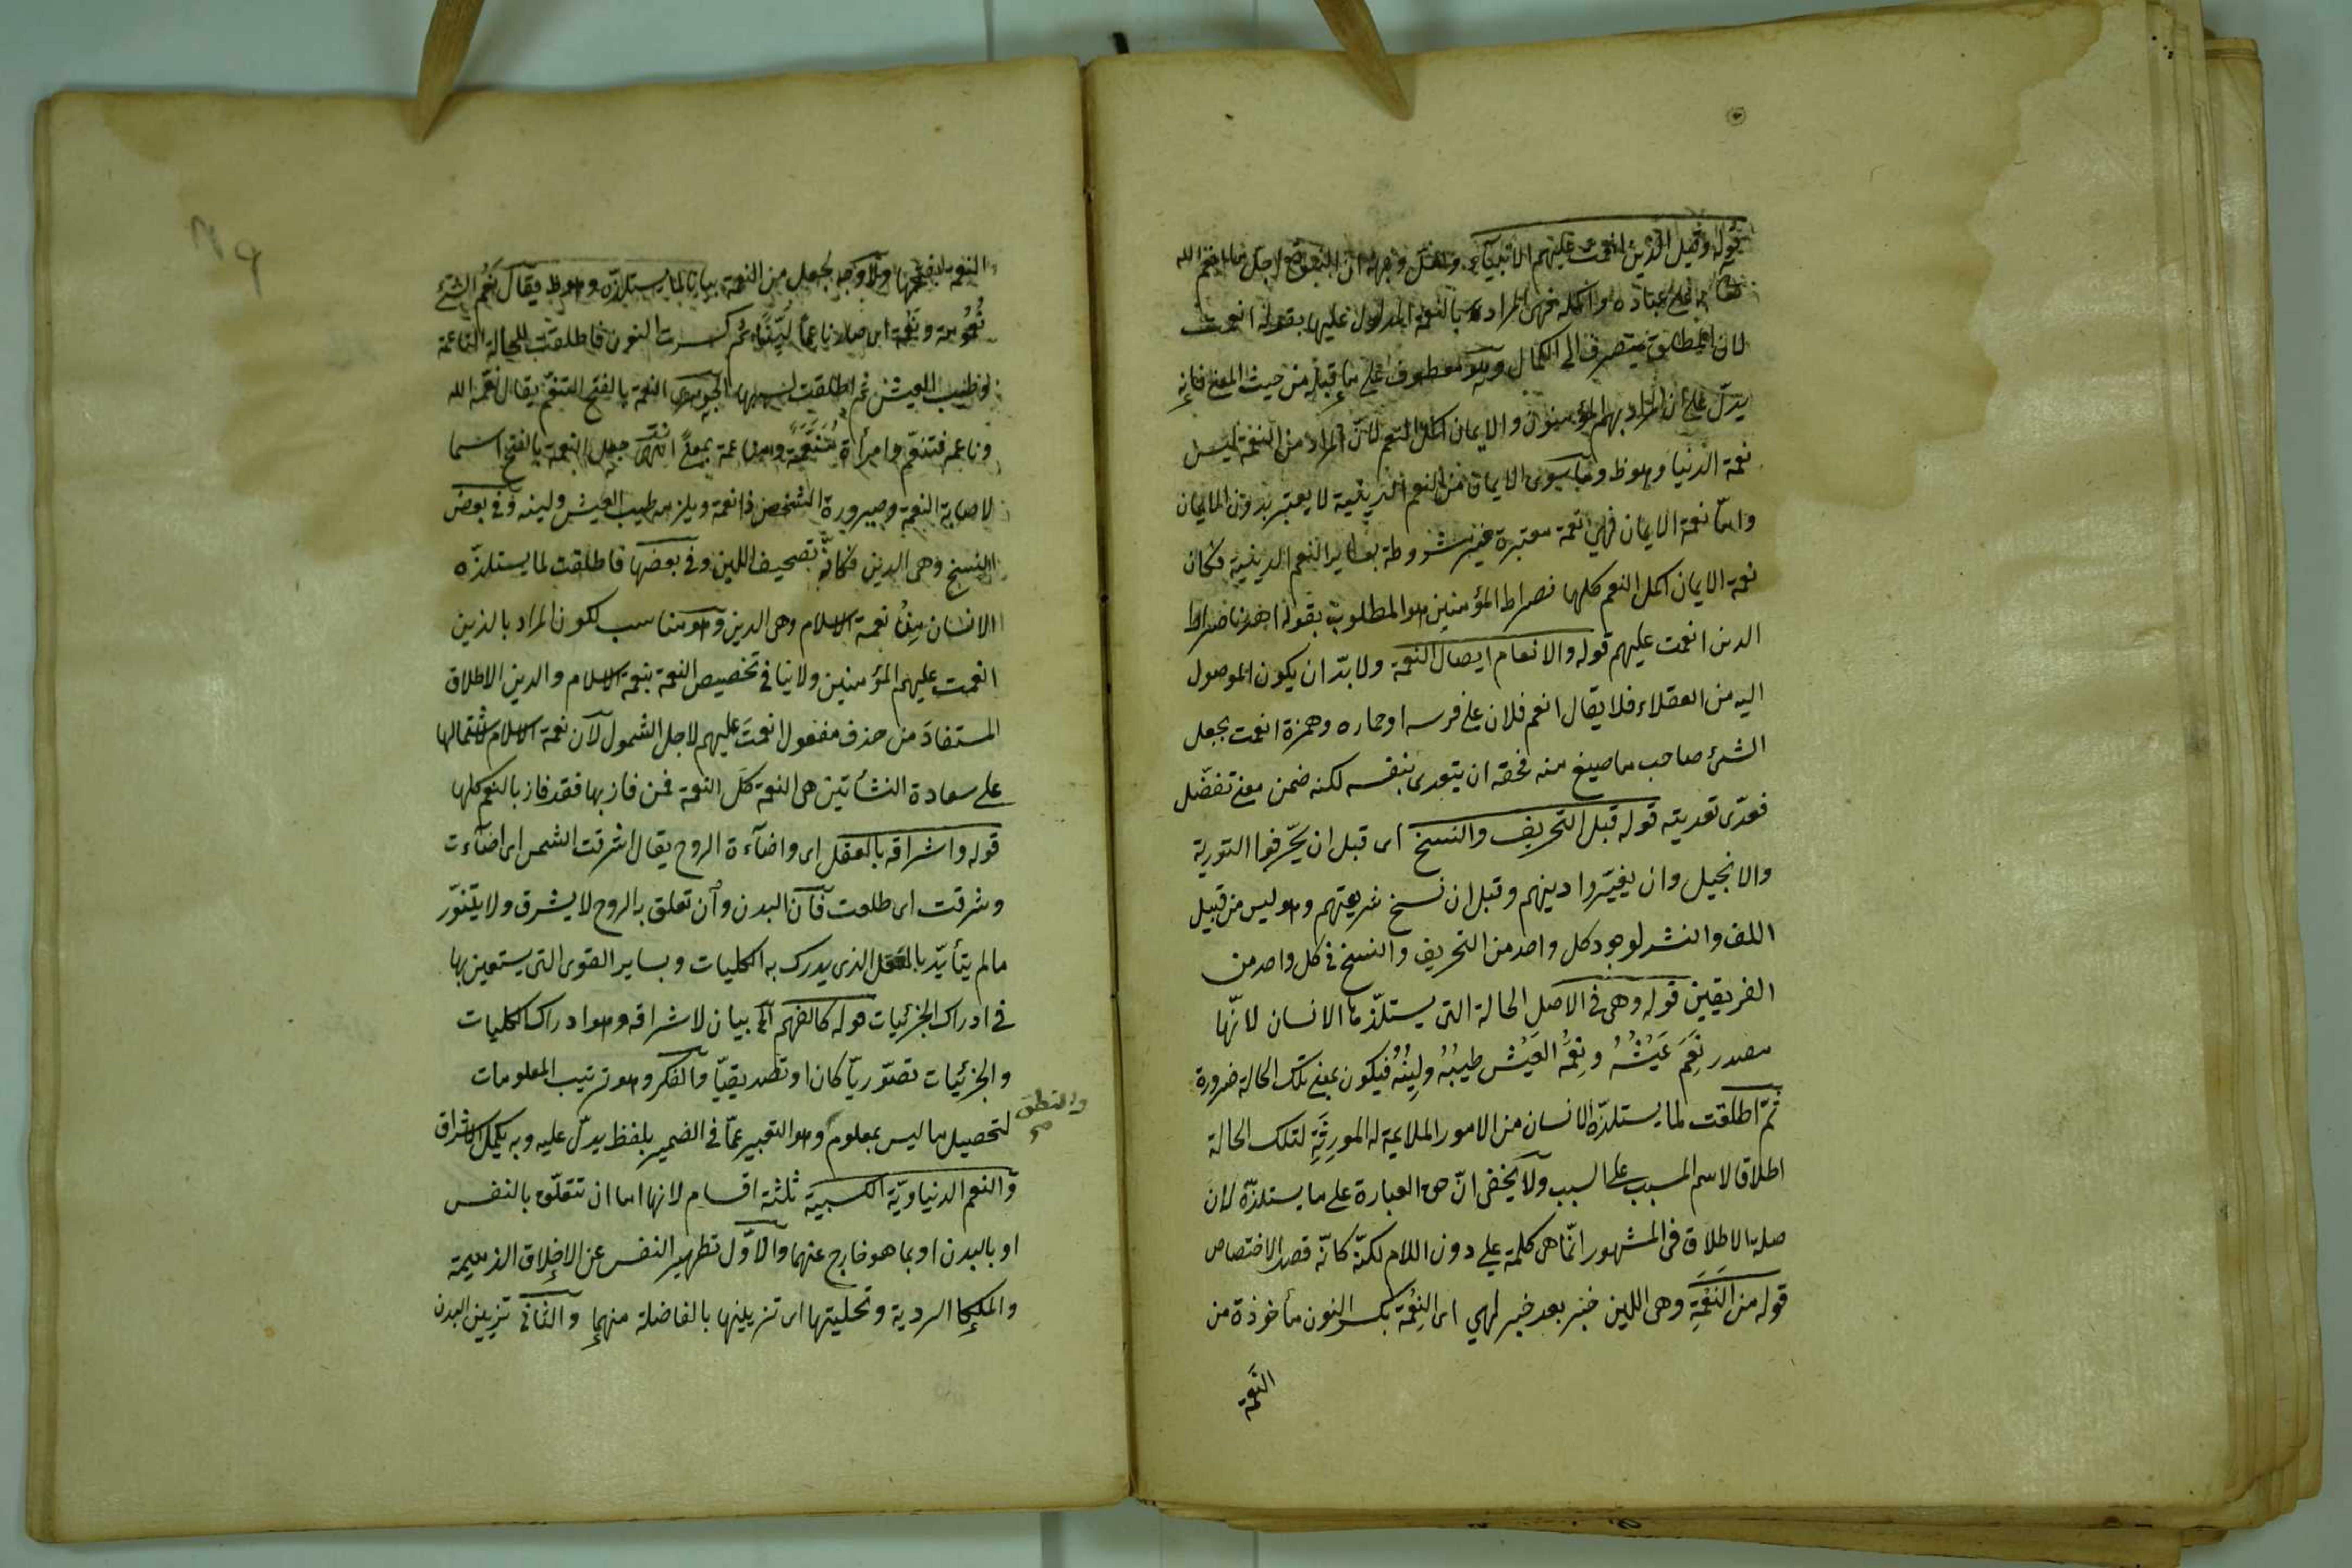 قوله وقيل الذين انعمت عليهم الانبياء ولعل وجهه ان النبوة اجل ما انعم الله
تعالى بها على عباده واكمله فهى المرادة بالنعمة المدلول عليها بقوله انعمت
لان المطلق ينصرف الى الكمال وهو معطوف على ما قبله من حيث المعنى فانه
يدلّ على ان المراد بهم المؤمنون والايمان اكمل النعم لانّ المراد من النعمة ليس
نعمة الدنيا وهو ظ وما سوى الايمان من النعم الدينية لا يعتبر بدون الايمان
وامّا نعمة الايمان فهى نعمة معتبرة غير مشروطة بساير النعم الدينية فكان
نعمة الايمان اكمل النعم كلها فصراط المؤمنين هو المطلوب بقوله اهدنا صراط
الذين انعمت عليهم قوله والانعام ايصال النعمة ولا بدّ ان يكون الموصول
اليه من العقلاء فلا يقال انعم فلان على فرسه او حماره وهمزة انعمت بجعل
الشئ صاحب ما صيغ منه فحقه ان يتعدى بنفسه لكنه ضمن معنى تفضّل
فعدّى تعديته قوله قبل التحريف والنسخ اى قبل ان يحّرفوا التورية
والانجيل وان يغيّروا دينهم وقبل ان نسخ شريعتهم وهو ليس من قبيل
اللف والنشر لوجود كل واحد من التحريف والنسخ فى كل واحد من
الفريقين قوله وهى فى الاصل الحالة التى يستلذّها الانسان لانّها
مصدر نَعِمَ عَيْشُهُ ونِعْمَةُ العَيْش طيبُهُ ولِينُهُ فيكون بمعنى تلك الحالة ضرورة
ثمّ اطلقت لما يستلذّه الانسان من الامور الملايمة له المورِثَةِ لتلك الحالة
اطلاقا لاسم المسبب على السبب ولا يخفى انّ حق العبارة على ما يستلذّه لان
صلة الاطلاق فى المشهور انّما هى كلمة على دون اللام لكنّه كانّه قصد الاختصاص
قوله من النَعْمَةِ وهى اللين خبر بعد خبر لهى اى النِعْمَة بكسر النون مأخوذة من
النَعمة
النعمة بفتحها ولا وجه لجعل من النعمة بيانا لما يستلذّه وهو ظ فيقال نَعُم الشئ
نُعُومة ونَعْمة اى صار ناعماً ليّنًا ثم كسرت النون فاطلقت للحالة الناعمة
ثم اطلقت الجوهرى النعمة بالفتح التنعّم يقال نعّمه الله
وناعمه فتنعّم وامرأة مُنَعَّمَة ومناعمة بمعنًى انتهى جعل النعمة بالفتح اسما
لاصابة النعمة وصيرورة الشخص ذا نعمة ويلزمه طيب العيش ولينه وفى بعض
النسخ وهى الدين فكانّه تصحيف اللين وفى بعضها فاطلقت لما يستلذّه
الانسان مِنْ نعمة الاسلام وهى الدين وهو مناسب لكون المراد بالذين
انعمت عليهم المؤمنين ولا ينافى تخصيص النعمة بنعمة الاسلام والدين الاطلاق
المستفادَ من حذف مفعول انعمتَ عليهم لاجل الشمول لانّ نعمة الاسلام لاشتمالها
على سعادة النشأتين هى النعمة كلّ النعمة فمن فاز بها فقد فاز بالنعم كلها
قوله واشراقه بالعقل اى واضآءة الروح يقال اشرقت الشمس اى اضآءت
وشرقت اى طلعت فانّ البدن وان تعلق به الروح لا يشرق ولا يتنوّر
ما لم يتأيّد بالعقل الذى يدرك به الكليات وبساير القوى التى يستعين بها
فى ادراك الجزئيات قوله كالفهم الخ بيان لاشراقه وهو ادراك الكليات
والجزئيات تصوّريّا كان او تصديقيّا والفكر وهو ترتيب المعلومات
لتحصيل ما ليس بمعلوم وهو التعبير عمّا فى الضمير بلفظ يدلّ عليه وبه يكمل الاشراق
والنطق صح
والنعم الدنياويّة الكسبيّة ثلثة اقسام لانها اما ان تتعلّق بالنفس
او بالبدن او بما هو خارج عنهما والاوّل تطهير النفس عن الاخلاق الذميمة
الردية وتحليتها اى تزيينها بالفاضلة منهما والثانى تزيين البدن